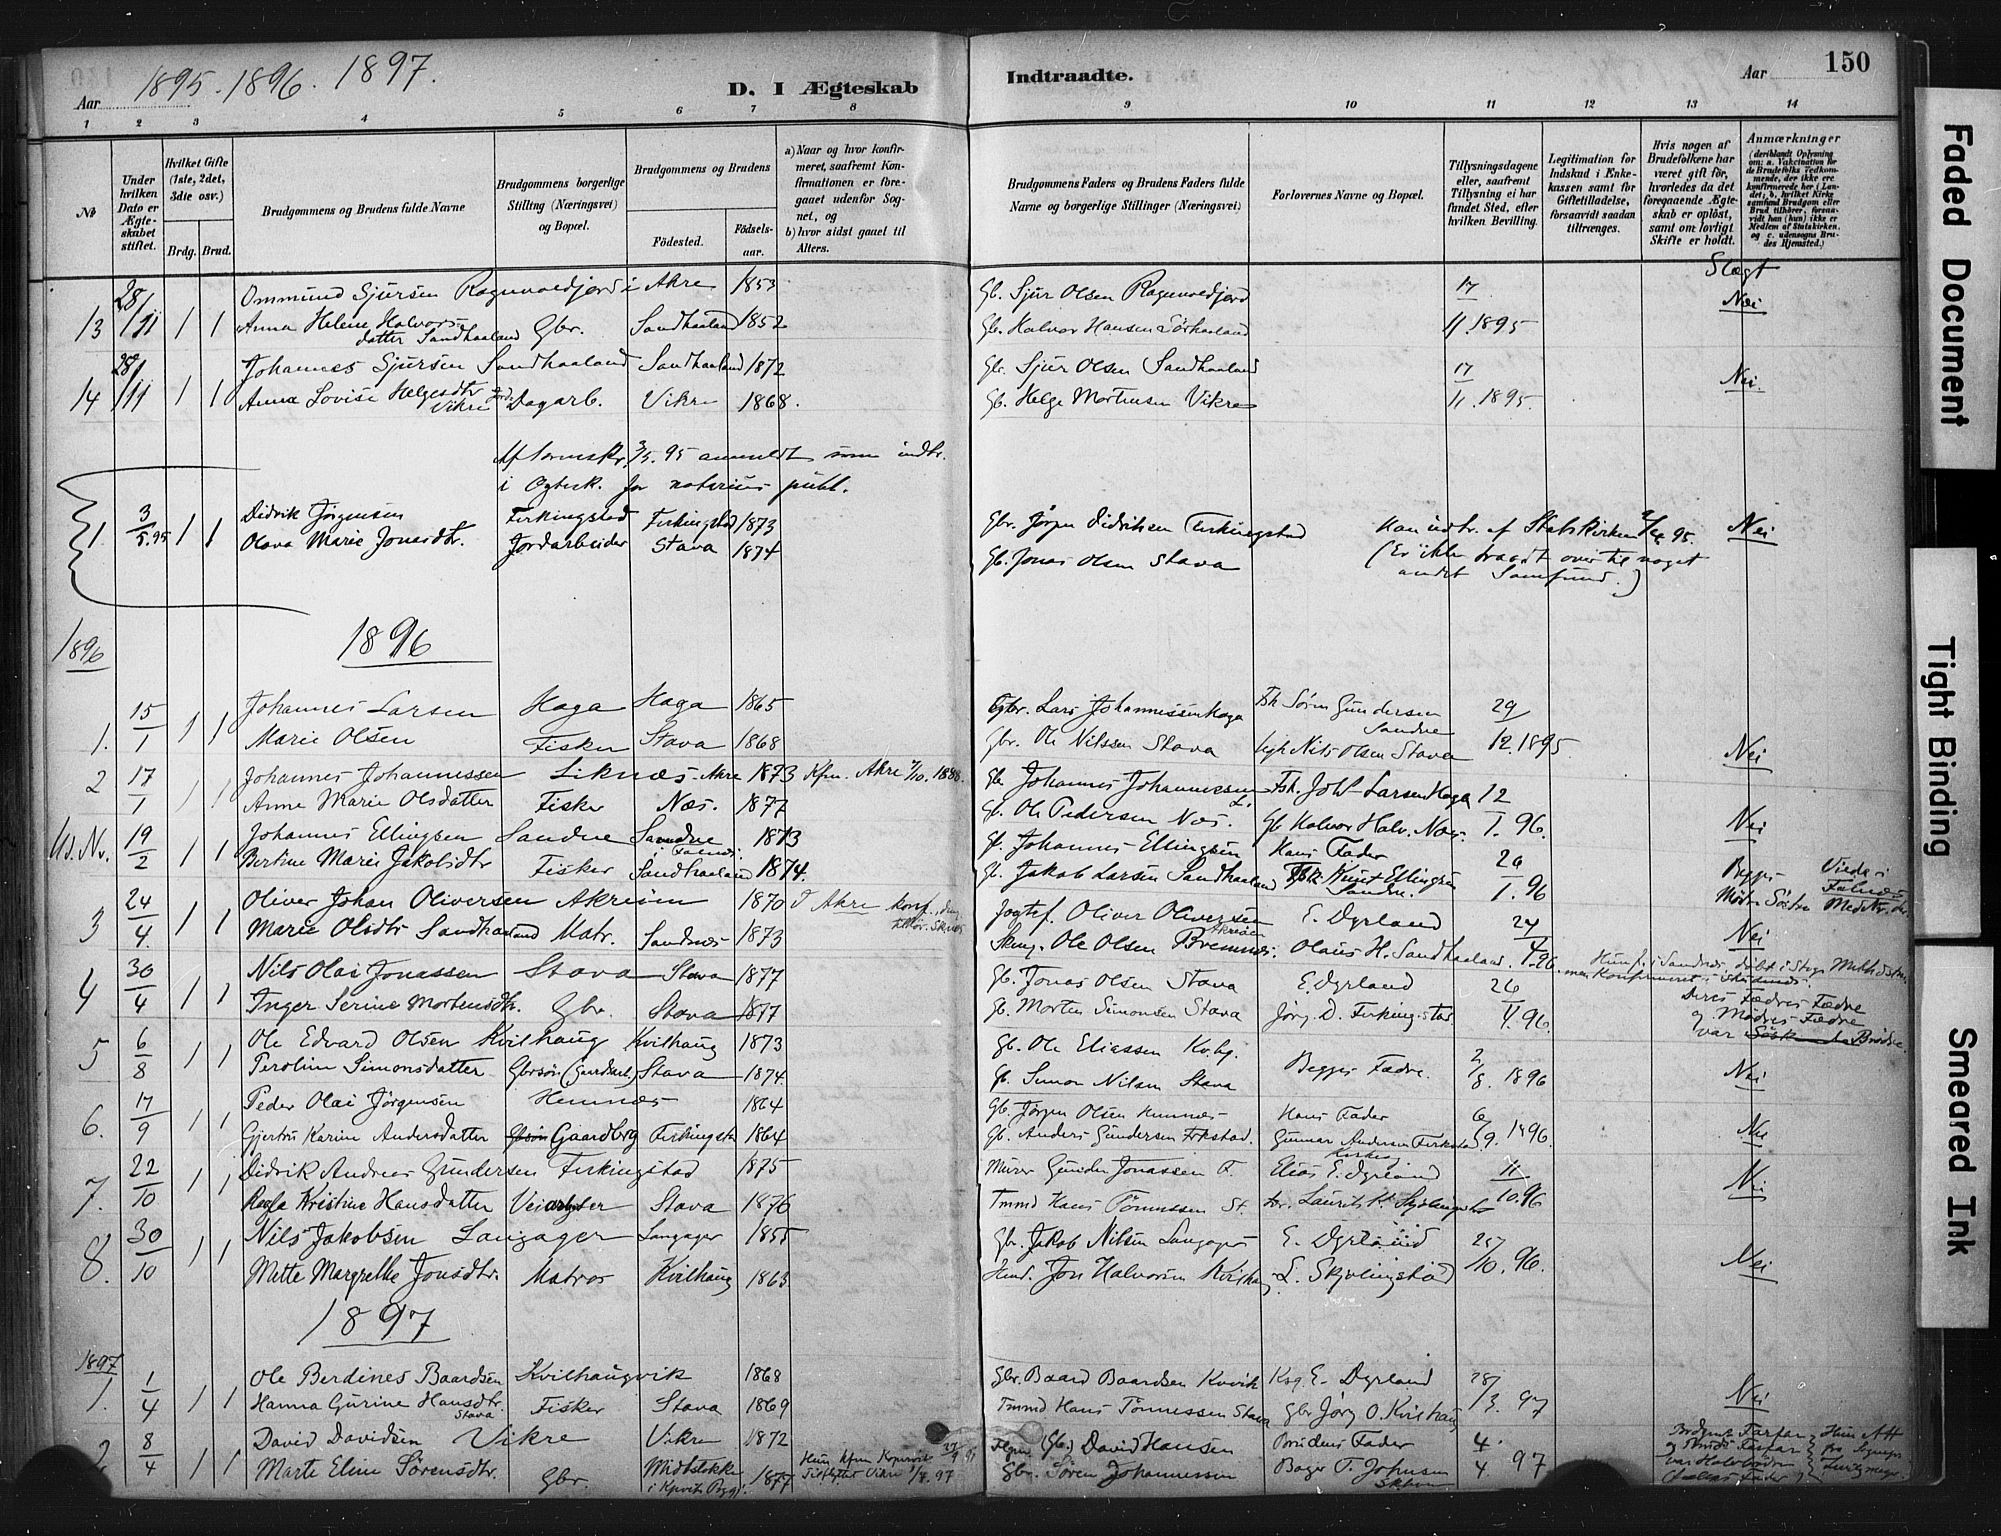 Aar 1895. 1896. 1897.
D. I Ægteskab
Indtraadte.
Aar
150
1 2 3 4 5 6 7 8 9 10 11 12 13 14
No
Under hvilken Dato er Ægteskabet stiftet.
Hvilket Gifte (1ste, 2det, 3die osv.)
Brdg. Brud.
Brudgommens og Brudens fulde Navne
Brudgommens borgerlige Stilling (Næringsvei) og Bopæl.
Brudgommens og Brudens
Födested.
Födselsaar.
a) Naar og hvor konfirmeret, saafremt Konfirmationen er foregaaet udenfor Sognet, og
b) hvor sidst gaaet til Alters.
Brudgommens Faders og Brudens Faders fulde Navne og borgerlige Stillinger (Næringsvei)
Forlovernes Navne og Bopæl.
Tillysningsdagene eller, saafremt Tillysning ei har fundet Sted, efter hvilken Bevilling.
Legitimation for Indskud i Enkekassen samt for Giftetilladelse, forsaavidt saadan tiltrænges.
Hvis nogen af Brudefolkene har været gift för, hvorledes da det foregaaende Ægteskab er oplöst, samt om lovligt Skifte er holdt.
Anmærkninger
(deriblandt Oplysning om: a. Vakcination for de Brudefolks Vedkommende, der ikke ere konfirmerede her i Landet; b. hvilket Kirkesamfund Brudgom eller Brud tilhörer, forsaavidt han (hun) ikke er Medlem af Statskirken, og c. udensogns Brudes Hjemsted.)
Slægt
28/ Ommund Sjursen Ragnvoldjord i Akre 1853 Gb. Sjur Olsen Ragnvoldjord 17 Nei
13 /11 1 1 Anna Helene Halvorsdatter Sandhaaland Gbr. Sandhaaland 1852 Gbr. Halvor Hansen Sörhaaland 11. 1895
28/ Johannes Sjursen Sandhaaland Sandhaaland 1872 Gbr. Sjur Olsen Sandhaaland 17 Nei.
14 /11 1 1 Anna Lovise Helgesdtr Vikre Dagarb. Vikre 1868. Gb. Helge Mortensen Vikre 11. 1895.
3/5. 95 anmeldt som indtr.
i Ægtesk. for notarius publ.
1. 3/5.95 1 1 Didrik Jørgensen Ferkingstad Ferkingstad 1873 Gbr. Jørgen Didriksen Ferkingstad Han udtr. af Statskirken 95. Nei
Olava Marie Jonasdtr. Jordarbeider Stava 1874 Gb. Jonas Olsen Stava (Er ikke traadt over til noget
andet Samfund.)
1896
1896
15 Johannes Larsen Haga Haga 1865 Gbr. Lars Johannessen Haga Fsk Søren Gundersen Sandne 29
1. 1 1 1 Marie Olsen Fisker Stava 1868 Gbr. Ole Nilssen Stava Ugk Nils Olsen Stava 12. 1895 Nei
2 17 Johannes Johannessen Liknæs Akre 1873 Kfm. Akre 1888. Gb. Johannes Johannessen L. Fsk. Joh. Larsen Haga 12
1 1 1 Anne Marie Olsdatter Fisker Næs. 1877 Gb. Ole Pedersen Næs. Gb Halvor Halv. Næs. 1. 96. Nei
Us. Nr. 19 Johannes Ellingsen Sandne Sandne i Falnes. 1873 Gb. Johannes Ellingsen Hans Fader 26
2 1 1 Bertine Marie Jakobsdtr Fisker Sandhaaland 1874. Gb. Jakob Larsen Sandhaaland Fsk. Knut Ellingsen Sandne. 1. 96 Begges Mødre Søstre Viede i Falnes
3 24 Oliver Johan Oliversen Akreöen 1870 I Akre konf. Jagtef. Oliver Oliversen Akreöen E. Dyrland 24
4 1 1 Marie Olsdtr Sandhaaland Matr. Sandnæs 1873 Ole Olsen Bremnes. Olaus H. Sandhaaland. 4. 96. Nei
4 30 Nils Olai Jonassen Stava Stava 1877 Gb. Jonas Olsen Stava E. Dyrland 26
4 1 1 Inger Serine Mortensdtr. Gbr. Stava 1877 Gb. Morten Simonsen Stava Jørg. D. Ferkingstad 4. 96. Deres Fædres Fædre og Mødres Fædre var Brødre.
5 6 Ole Edvard Olsen Kvilhaug Kvilhaug 1873 Gb. Ole Eliassen Kvhg. Begges Fædre. 2
8 1 1 Peroline Simonsdatter Gbrsön (Jordarb.) Stava 1874. Gb. Simon Nilsen Stava 8. 1896 Nei
6. 17 Peder Olai Jörgensen Hemnæs 1864 Gb. Jørgen Olsen Hemnæs Hans Fader 6
9 1 1 Gjertru Karine Andersdatter Gaardbrg Ferkingsta 1864 Gb. Anders Gundersen Frkstad. Gunnar Andersen Ferkstad 9. 1896. Nei
7. 22 Didrik Andreas Gundersen Ferkingstad 1875 Murer Gunder Jonassen F. Elias E. Dyrland 11
10 1 1 Kristine Hansdatter Veiarbeider Stava 1876 Tmmd Hans Tönnessen St. Laurits Skjölingstad 10.96 Nei
8. 30 Nils Jakobsen Langager Langager 1855 Gbr. Jakob Nilsen Langager E. Dyrland 25/
10 1 1 Mette Margrethe Jonsdtr. Matros Kvilhaug 1863 Hmd. Jon Halvorsen Kvilhaug L. Skjölingstad 10. 96. Nei
1897
1897
1. 1 Ole Berdines Baardsen Kvilhaugvik 1868 Gbr. Baard Baardsen Kvvik Ksg. E. Dyrland 28/
4 1 1 Hanna Gurine Hansdtr. Stava Fisker Stava 1869 Tmmd Hans Tönnessen Stava Gbr Jörg O. Kvilhaug 3. 97 Nei
2. 8 David Davidsen Vikre Vikre 1872 (Gb.) David Hansen Brudens Fader 4.
4 1 1 Marte Eline Sörensdtr. Gbr. Midtstokke 1877 Hun kfm Kopervik Tilflyttet Vikre 97 Gbr. Sören Johannessen Bager T. Johnsen 4. 97 Brdgms Farfar og Bruds Farfar var Halvbrødre
Faded Document
Tight Binding
Smeared Ink